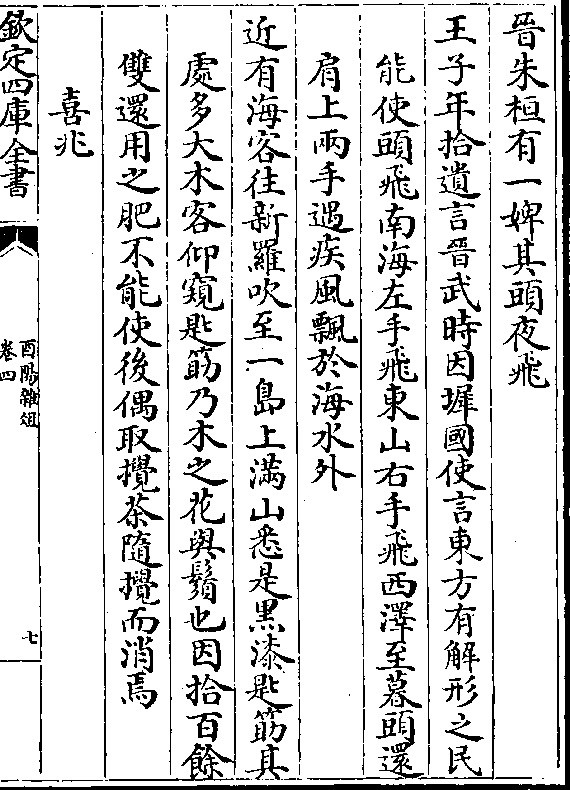 晉朱桓有一婢其頭夜飛
王子年拾遺言晉武時因墀國使言東方有解形之民
能使頭飛南海左手飛東山右手飛西澤至暮頭還
肩上兩手遇疾風飄於海水外
近有海客往新羅吹至一島上滿山悉是黑漆匙筯其
處多大木客仰窺匙筯乃木之花與鬚也因拾百餘
雙還用之肥不能使後偶取攪茶隨攪而消焉
喜兆
欽定四庫全書
酉陽雜俎
卷四
七